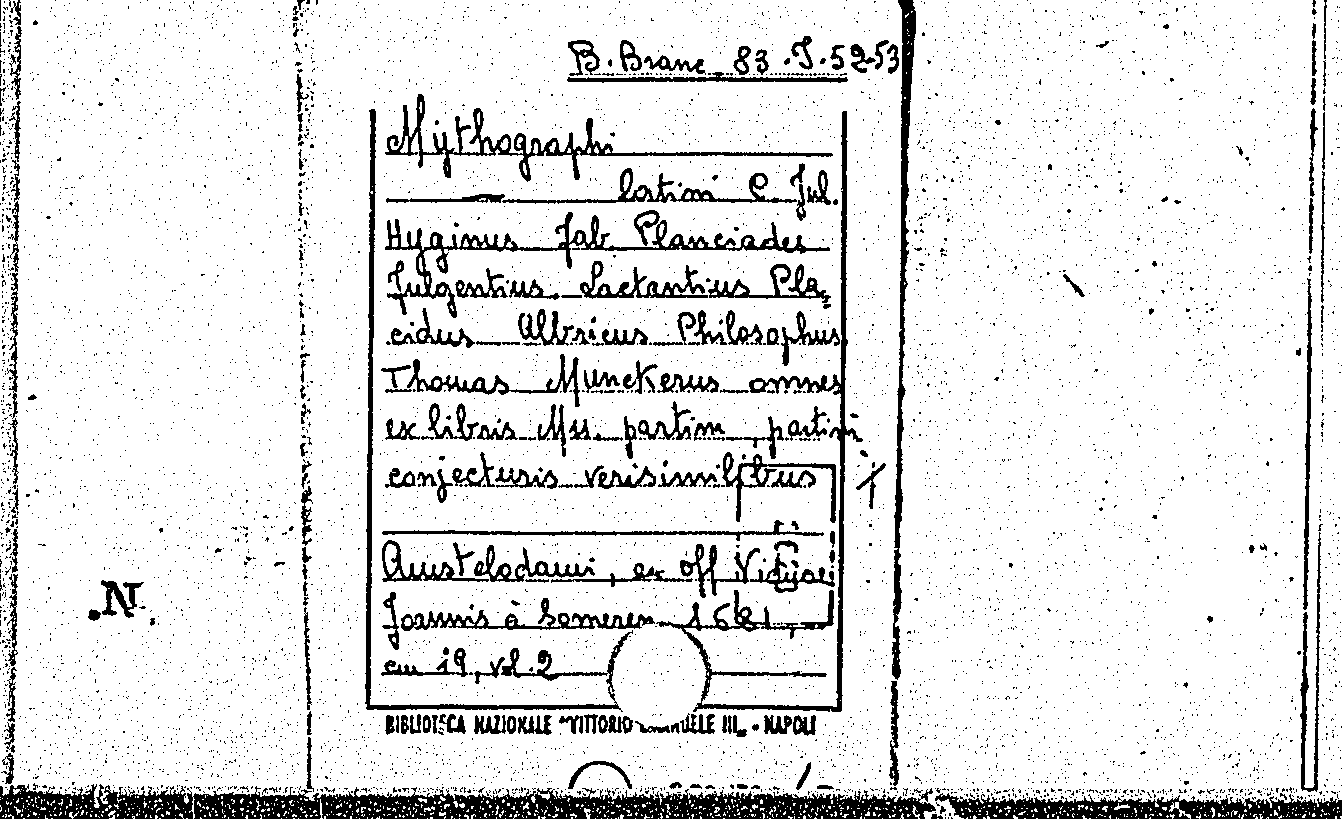 B. Branc. 83. J. 52-53
Mythographi
latini C. Jul.
Hyginus Fab Planciades
Fulgentius. Lactantius Pla=
cidus Albricus Philosophus
Thomas Munckerus omnes
ex libris Mss. partim, partim
conjecturis verisimilibus
Amstelodami, ex off Viduae
Joannis à Someren 1681,
cm 19, vol. 2
BIBLIOTECA NAZIONALE "VITTORIO EMANUELE III„ - NAPOLI
.N.